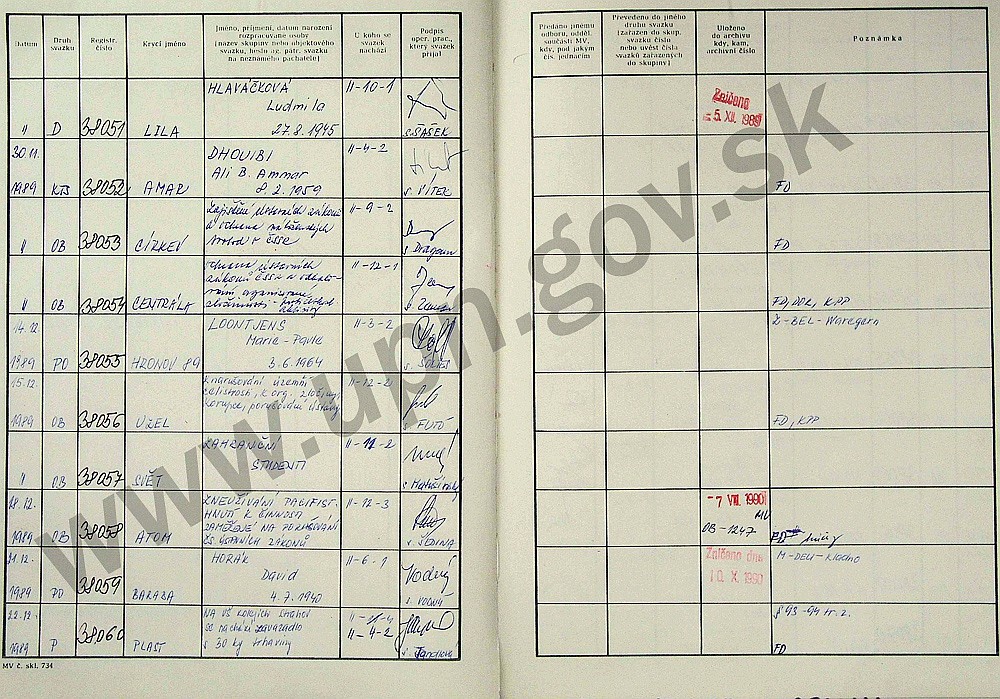 Datum
Druh svazku
Registr. číslo
Krycí jméno
Jméno, příjmení, datum narození
rozpracované osoby
(název skupiny nebo objektového
svazku, heslo ag. pátr. svazku
na neznámého pachatele)
U koho se
svazek
nachází
Podpis
oper. prac.,
který svazek
přijal
Předáno jinému
odboru, odděl.
součásti MV,
kdy, pod jakým
čís. jednacím
Převedeno do jiného
druhu svazku
(zařazen do skup.
svazku číslo
nebo uvést čísla
svazků zařazených
do skupiny)
Uloženo
do archivu
kdy, kam,
archivní číslo
Poznámka
HLAVÁČKOVÁ
Ludmila
27.8.1945
II-10-1
" D 38051 LILA
s. ŠAŠEK
Zničeno
-5. XII. 1989
30.11.
1989 KTS 38052 AMAR
DHOUIBI
Ali B. Ammar
8.2.1959
II-4-2
s. VÍTEK
FD
" OB 38053 CÍRKEV
Zajištění církevních zákonů
a ochrana náboženských
svobod v ČSSR
II-9-2
s. Dragoun
FD
" OB 38054 CENTRÁLA
ochrana ústavních
zákonů ČSSR a
organizované
II-12-1
s. Zeman
FD, DOR, KPP
14.12.
1989 PO 38055 HRONOV 89
LOONTJENS
Marie-Pavle
3.6.1964
II-3-2
s. ŠOLTÉS
Ž-BEL-Waregem
15.12.
1989 OB 38056 UZEL
k narušování územní
celistvosti, k org. zločinu,
korupce, porušování ústavy
II-12-2
s. FUTÓ
FD, KPP
" OB 38057 SVĚT
ZAHRANIČNÍ
STUDENTI
II-12-2
18.12.
1989 OB 38058 ATOM
ZNEUŽÍVÁNÍ PACIFIST.
HNUTÍ K ČINNOSTI
ZAMĚŘENÉ NA PORUŠOVÁNÍ
ČS. ÚSTAVNÍCH ZÁKONŮ
II-12-3
s. ŠEDINA
-7 VIII. 1990
MV
OB-1247
FD
21.12.
1989 PO 38059 BARABA
HORÁK
David
4.7.1940
II-6-1
s. VODNÝ
Zničeno dne
10. X. 1990
M-DELI-Kladno
22.12.
1989 P 38060 PLAST
NA VŠ kolejích Strahov
se nachází zavazadlo
s 30 kg trhaviny
II-4-2
s. Jandlová
§ 93-94 tr. z.
FD
MV č. skl. 734
www.upn.gov.sk